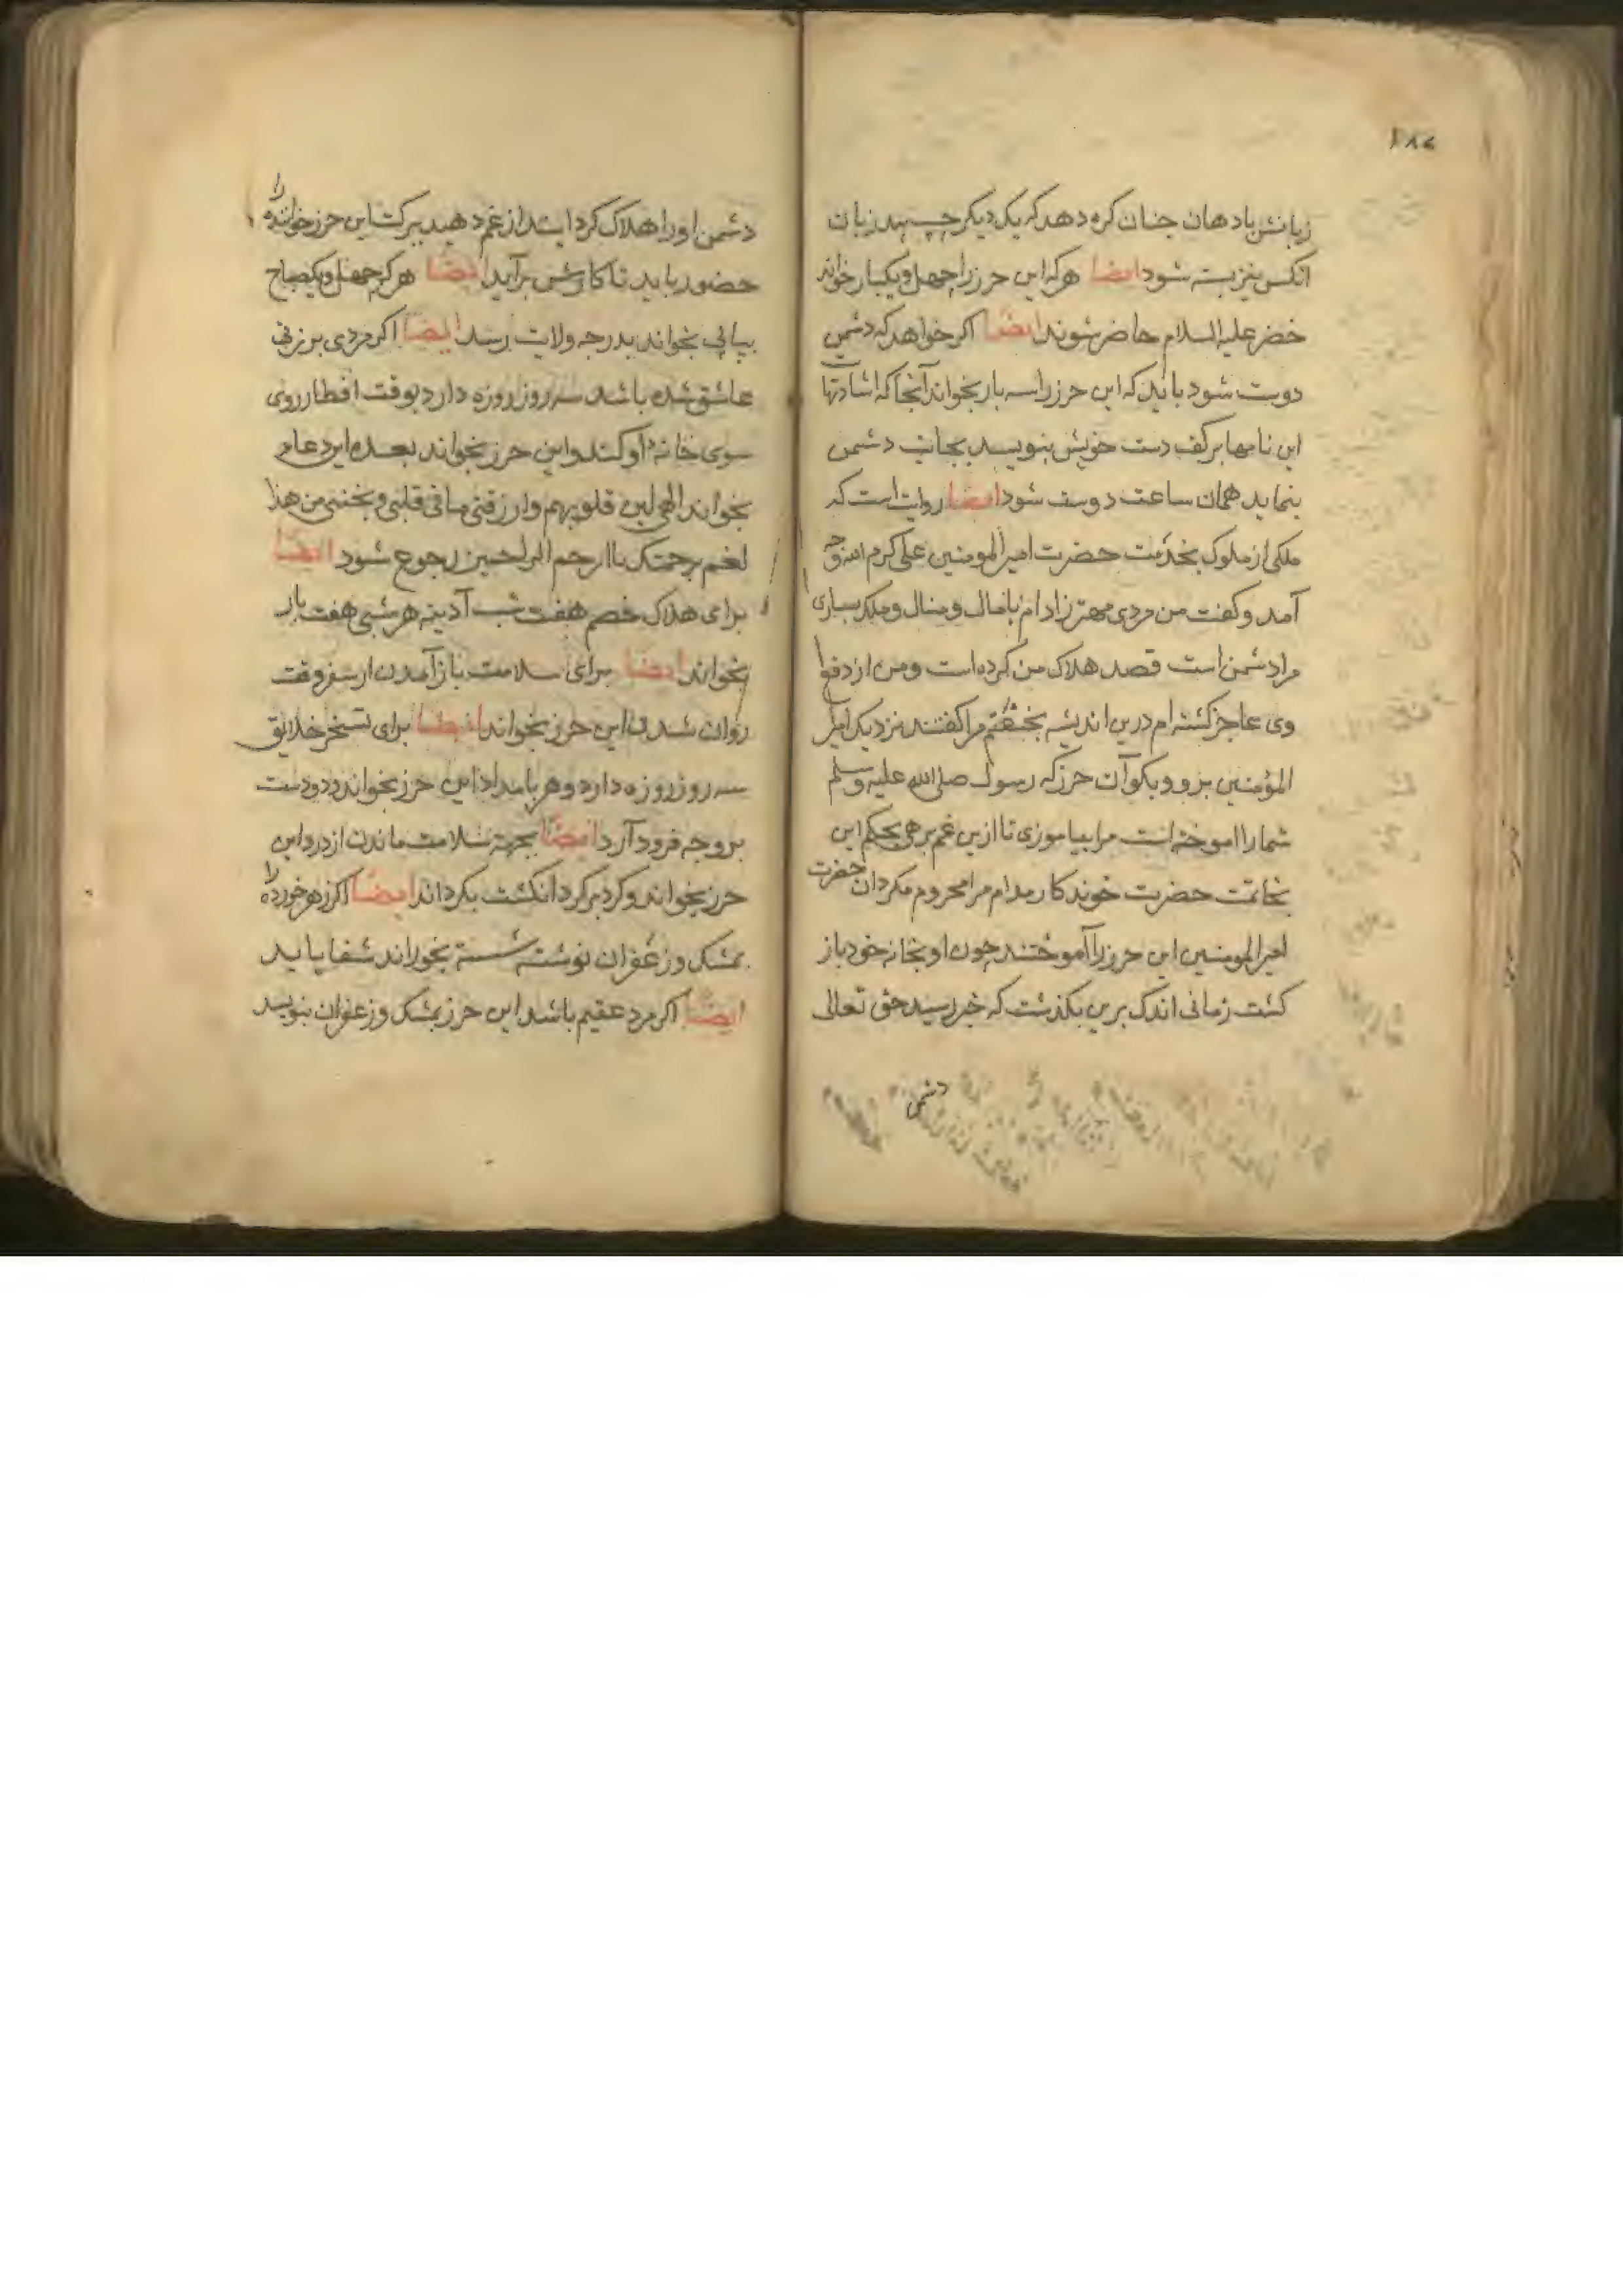 ۱۸۶
زبانش بادهان جنان کره دهد که یک دیکر چسپد زبان
انکس نیز بسته شود ایضا هرکه این حرز را چهل و یکبار خواند
خضر علیه السلام حاضر شوند ایضا اکر خواهد که دشمن
دوست شود باید که این حرز را سه بار بخواند آنجا که اشارتها ست
این نامها بر کف دست خویش بنویسد بجانب دشمن
بنماید همان ساعت دوست شود ایضا روایت است که
ملکی از ملوک بخدمت حضرت امیر المومنین علی کرم الله وجه
آمد و کفت من مردی مهتر زاده ام با مال و منال و ملک بسیاری
مرا دشمن است قصد هلاک من کرده است و من از دفع
وی عاجز کشته ام درین اندیشه بخفتم مرا کفتند نزدیک امیر
المؤمنین برو و بکو آن حرز که رسول صلی الله علیه وسلم
شمارا اموخته است مرا بیاموزی تا ازین غم برهم بحکم این
بخاتمت حضرت خوندکار مدام مرا محروم مکردان حضرت
امیر المومنین این حرز را آموختند چون او بخانه خود باز
کشت زمانی اندک برین بکذشت که خبر رسید حق تعالی
دشمن
دشمن او را هلاک کردایند از غم دهید ببرکت این حرز خواننده را
حضور باید تا کارش برآید ایضا هرکه چهل و یک صباح
بیاپی بخواند بدرجه ولایت رسد ایضا اکر مردی بر زنی
عاشق شده باشد سه روز روزه دارد بوقت افطار روی
سوی خانه او کند و این حرز بخواند بعده این دعا م
بخواند الهی لین قلوبهم وارزقنی ما فی قلبی و بخنی من هذا
لغم برحمتک یا ارحم الراحمین رجوع شود ایضا
برای هلاک خصم هفت شب آدینه هر شبی هفت بار
بخواند ایضا برای سلامت باز آمدن از سفر وقت
روان شدن این حرز بخواند ایضا برای تسخر خلایق
سه روز روزه دارد و هر بامداد این حرز بخواند و دو دست
بر وجه فرود آرد ایضا بجهته سلامت ماندن از درد این
حرز بخواند و کرد بر کرد انکشت بکرداند ایضا اکر زهر خورده را
بمشک و زعفران نوشته شسته بخوراند شفا یابد
ایضا اکر مرد عقیم باشد این حرز بمشک و زعفران بنویسد